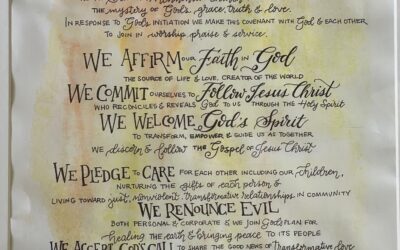 the mystery of God's, grace, truth & love.
In response to God's initiation we make this covenant with God & each other
to join in worship, praise & service.
We Affirm our Faith in God
the source of life & love, creator of the world
We Commit ourselves to Follow Jesus Christ
who reconciles & reveals God to us through the Holy Spirit
We Welcome God's Spirit
to transform, empower & guide us as together
we discern & follow the Gospel of Jesus Christ
We Pledge to Care for each other including our children,
nurturing the gifts of each person &
living toward just, nonviolent, transformative relationships in community
We Renounce Evil
both personal & corporate & we join God's plan for
healing the earth & bringing peace to its people
We Accept God's Call to share the good news of Transformative Love